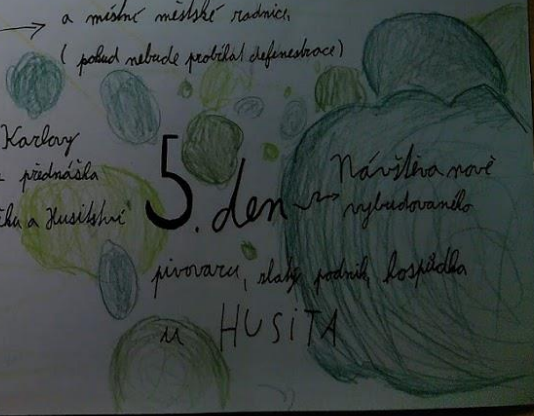 a místní městské radnici,
(pokud nebude probíhat defenestrace)
Karlovy
přednáška
a Husitství
5. den → Návštěva nově
vybudovaného
pivovaru, slatý podnik, hospůdka
u HUSITA